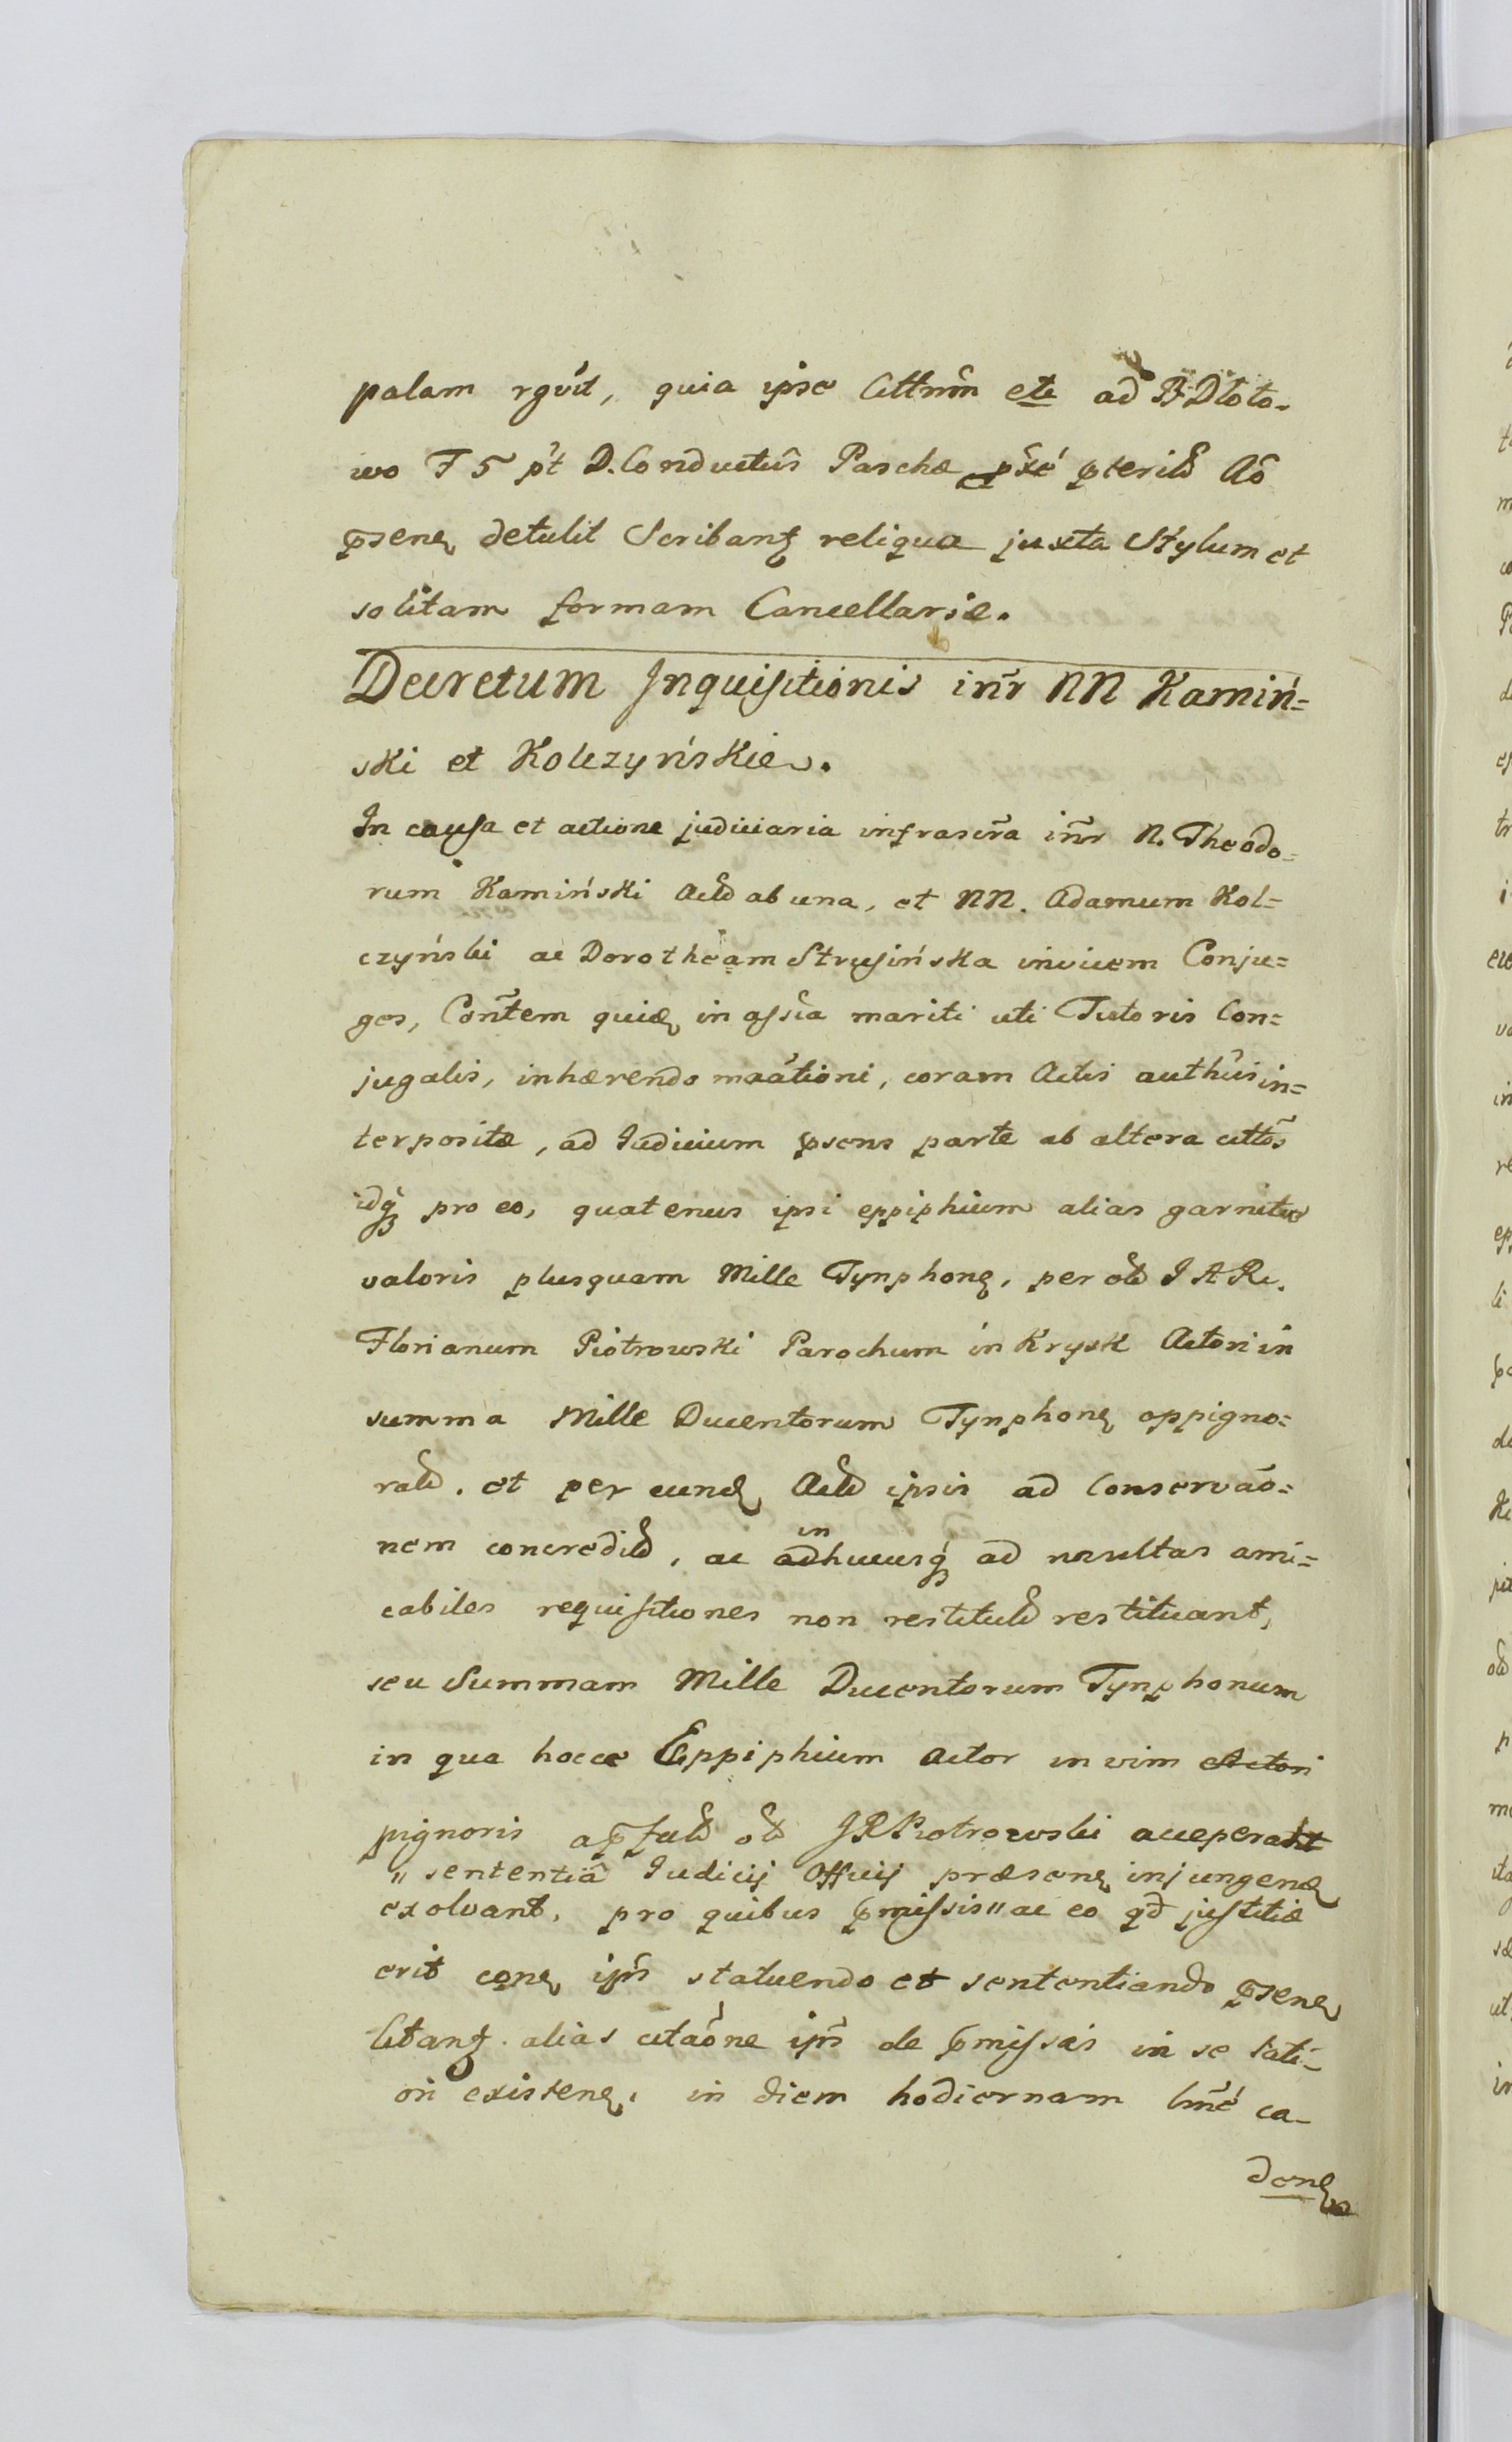 palam rgvit, quia ipse Cittnm̄ ete ad B. Dłoto-
wo F 5 pt D. Conductus Paschæ pxe pterit Ao
psen detulit Scribant reliqua juxta Stylum et
solitam formam Cancellariæ.
Decretum Inquisitionis inr NN Kamiń=
ski et Kolczyńskie.
In causa et actione judiciaria infrascra inr N. Theodo=
rum Kamiński Act ab una, et NN. Adamum Kol=
czyński ac Dorotheam Strusińska invicem Conju=
ges, Contem quid in assia mariti uti Tutoris Con=
jugalis, inhærendo maātioni, coram Actis authūs in=
terpositæ, ad Iudicium psens parte ab altera cittōs
idq pro eo, quatenus ipsi eppiphium alias garnitur
valoris plusquam Mille Tynphon, per ot J A R.
Florianum Piotrowski Parochum in Krysk Actori in
summa Mille Ducentorum Tynphon oppigno=
rat, et per eund Act ipsis ad Conservaō=
nem concredit, ac in
adhucusq ad multas ami=
cabiles requisitiones non restitut restituant,
seu Summam Mille Ducentorum Tynphonum
in qua hocce Eppiphium Actor in vim Actori
pignoris apfat ot J R Piotrowski acceperat
" sententiā Iudicij Officij præsen injungend
exolvant, pro quibus pmissis " ac eo qd justitiæ
erit con ipīs statuendo et sententiando psen
Citant. alias citaōne ipīs de pmissis in se lati-
ori existen, in diem hodiernam lmē ca-
den